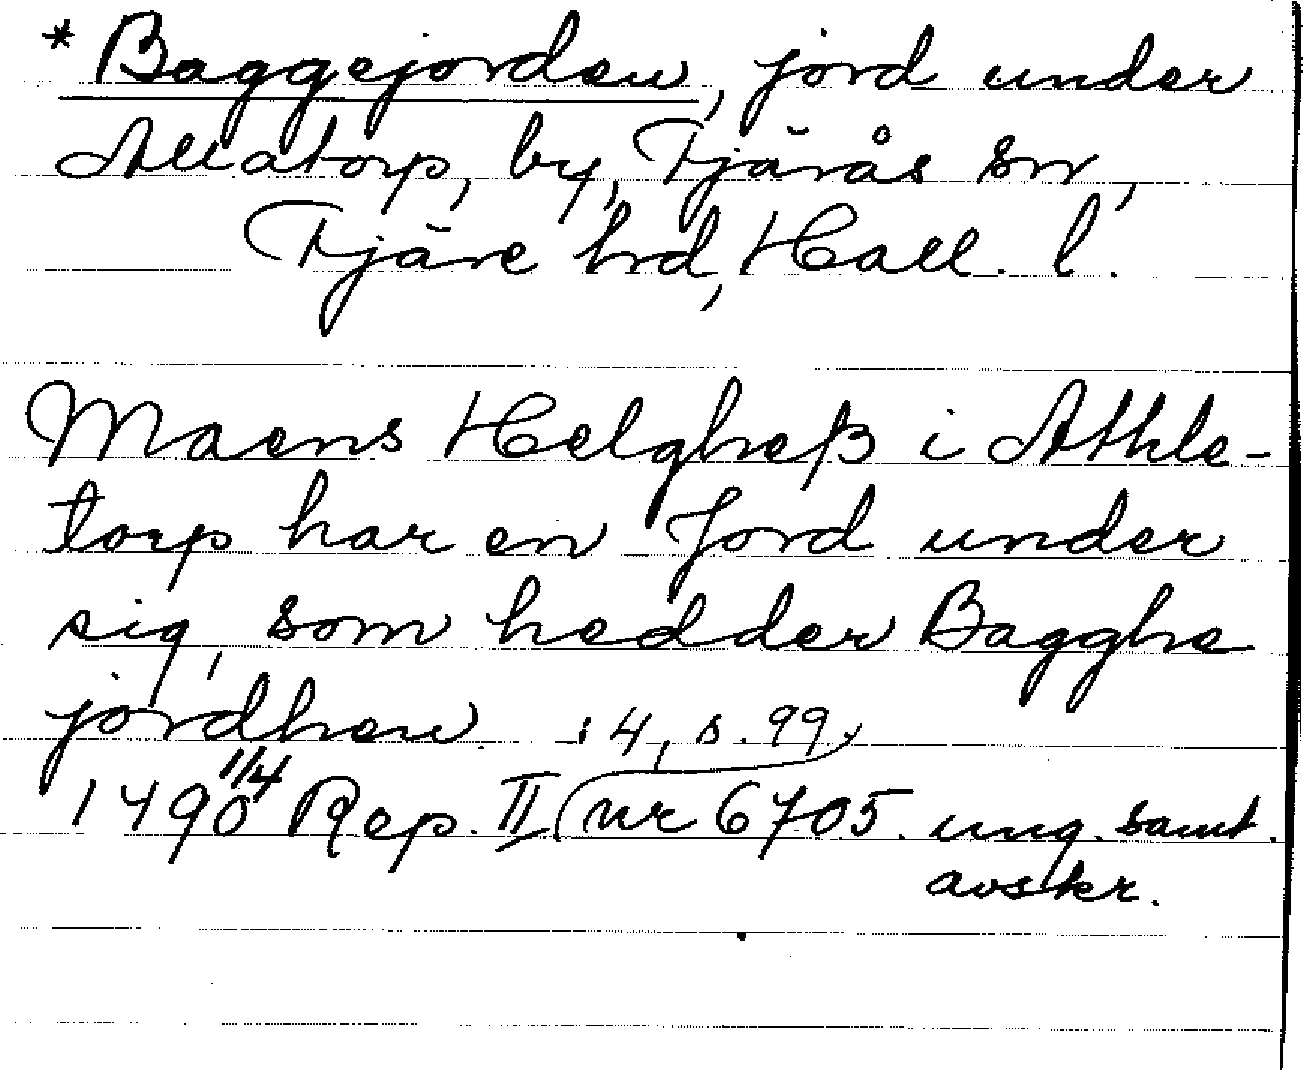 * Baggejorden, jord under
Allatorp, by, Tjärås sn,
Fjäre hrd, Hall. l.
Maens Helgheß i Athle-
torp har en Jord under
sig, som hedder Bagghe
jordhen 4, s. 99
1490 1/4 Rep. II nr 6705. ung. samt.
avskr.